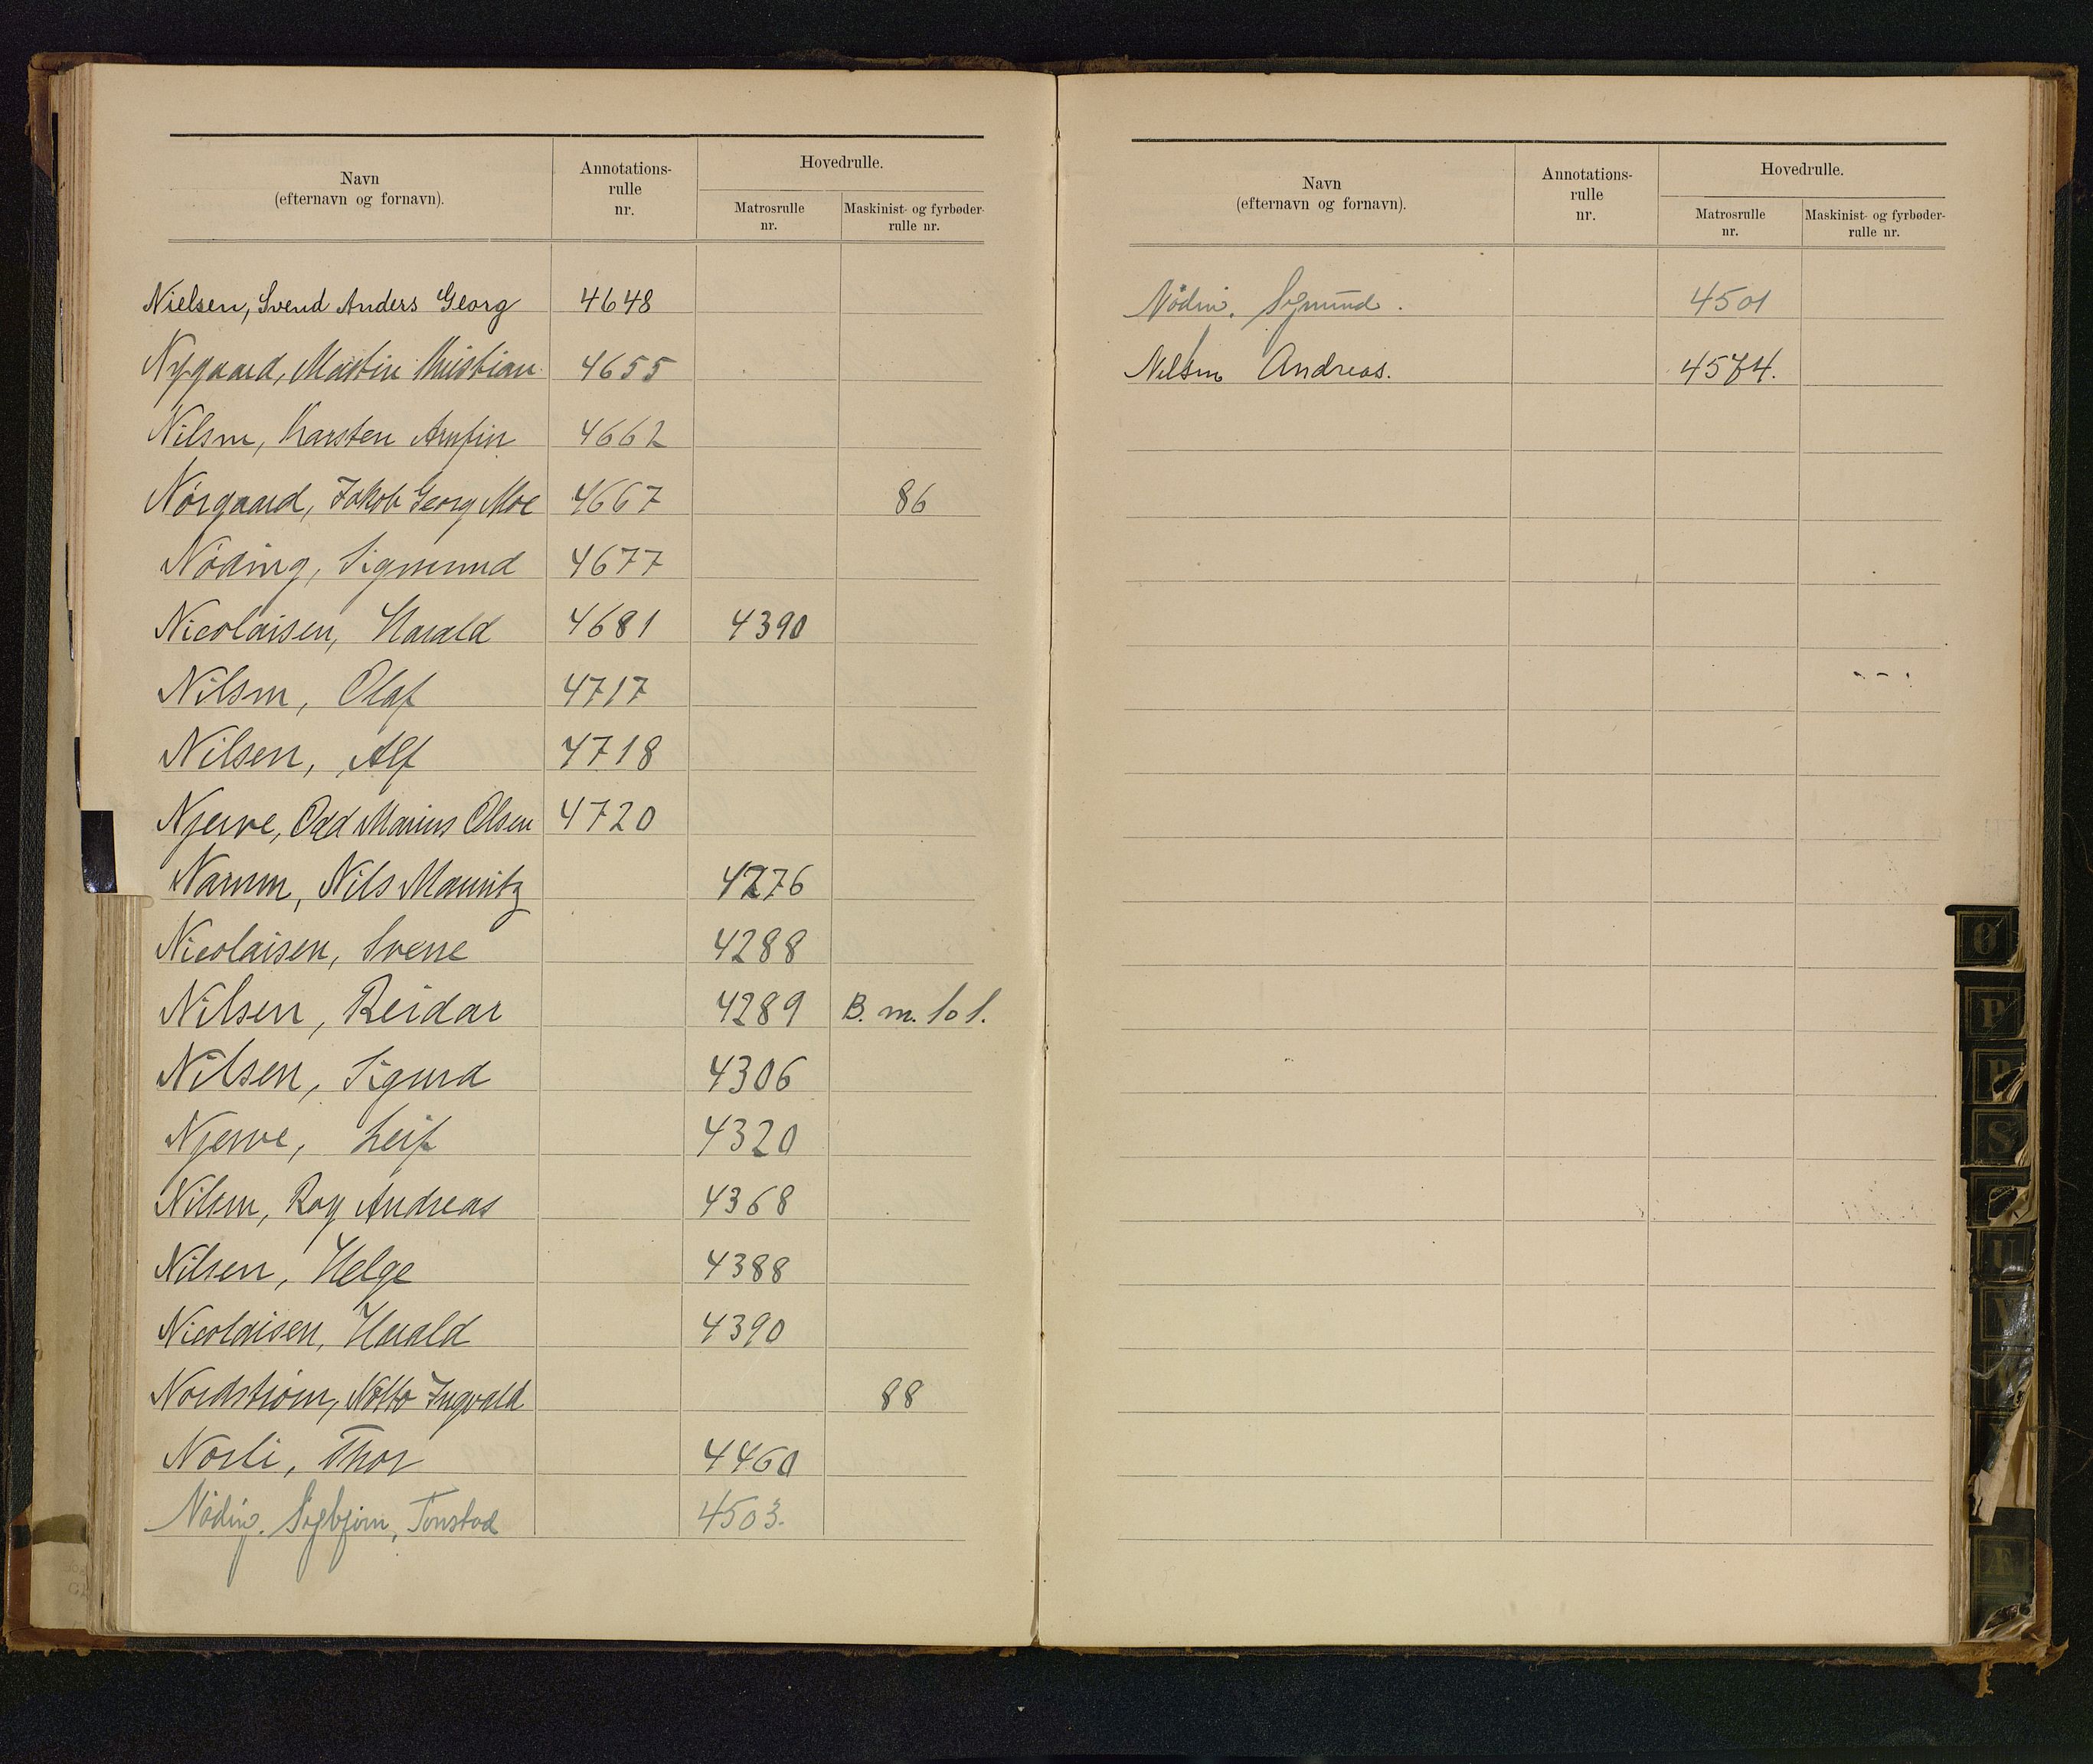 Navn
(efternavn og fornavn).
Annotations-
rulle
nr.
Hovedrulle.
Matrosrulle
nr.
Maskinist- og fyrbøder-
rulle nr.
Nielsen, Svend Anders Georg 4648
Nygaard, Martin Kristian 4655
Nilsen, Karsten Arnfin 4662
Nørgaard, Jakob Georg Moe 4667 86
Nöding, Sigmund 4677
Nicolaisen, Harald 4681 4390
Nilsen, Olaf 4717
Nilsen, Alf 4718
Njerve, Odd Marius Olsen 4720
Nils Mauritz 4276
Nicolaisen, Sverre 4288
Nilsen, Reidar 4289 B. m.
Nilsen, Sigurd 4306
Njerve, Leif 4320
Nilsen, Roy Andreas 4368
Nilsen, Helge 4388
Nicolaisen, Harald 4390
Nordstrøm, Ingvald 88
Norli, Thor 4460
Nödin, Sigbjörn, Tonstad 4503.
Navn
(efternavn og fornavn).
Annotations-
rulle
nr.
Hovedrulle.
Matrosrulle
nr.
Maskinist- og fyrbøder-
rulle nr.
Nödin, Sigmund. 4501
Nilsen Andreas. 4574.
O
P
R
S
U
V
Æ